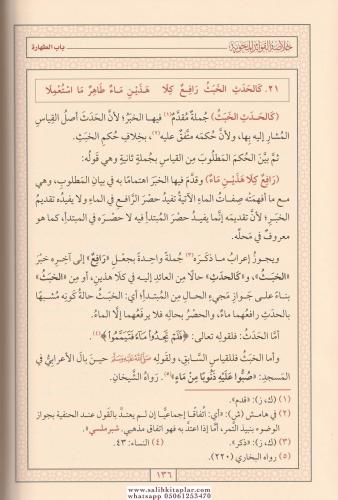 باب الطهارة
خلاصة الفوائد المحوية
٢١. كَالحَدَثِ الخَبَثُ رَافِعٌ كِلَا هَذَيْنِ مَاءٌ طَاهِرٌ مَا اسْتُعْمِلَا
(كَالحَدَثِ الخَبَثُ) جُملةٌ مُقدَّمٌ(١) فيها الخبرُ؛ لأنَّ الحَدَثَ أصلُ القياسِ
المُشارِ إليه بها، ولأنَّ حُكمَه متَّفقٌ عليه(٢)، بخلافِ حكمِ الخبَثِ.
ثمَّ بيَّن الحُكمَ المَطلوبَ من القياسِ بجُملةٍ ثانيةٍ وهي قَولُه:
(رَافِعٌ كِلَا هَذَيْنِ مَاءٌ) وقدَّم فيها الخبَرَ اهتمامًا به في بيانِ المطلوبِ، وهي
مع ما أفهمَتْه صِفاتُ الماءِ الآتيةُ تفيدُ حصْرَ الرَّافعِ في الماءِ ولا يفيدُه تقديمُ
الخبرِ؛ لأنَّ تقديمَه إنَّما يفيدُ حصْرَ المبتدأِ فيه لا حصرَه في المبتدأِ، كما هو
معروفٌ في مَحلِّه.
ويجوزُ إعرابُ ما ذكَرَه(٣) جُملةً واحدةً بجعلِ «رَافِعٌ» إلى آخرِه خبَرَ
«الخبَثُ»، و«كَالحدَثِ» حالًا من العائدِ إليه في كلا هذين، أو مِن «الخبَثُ»
بناءً على جَوازِ مَجيءِ الحالِ من المبتدأِ؛ أي: الخبَثُ حالةَ كونِه مُشبهًا
بالحدَثِ رافعُهما ماءٌ، والحصْرُ بحالِه فلا يرفَعُهما إلَّا الماءُ.
أمَّا الحدَثُ: فلقولِه تعالى: ﴿فَلَمْ تَجِدُوا مَاءً فَتَيَمَّمُوا﴾(٤).
وأما الخبَثُ فللقياسِ السَّابقِ، ولقولِه ﷺ حينَ بالَ الأعرابيُّ في
المَسجدِ: «صُبُّوا عَلَيْهِ ذَنُوبًا مِنْ مَاءٍ»(٥). رَواهُ الشَّيخانِ.
(١) (ك، ز): «قدم».
(٢) في هامش (ش): «أي: اتِّفاقًا إجماعيًّا إن لم يعتدَّ بالقول عند الحنفية بجواز
الوضوء بنبيذ التَّمر، أمَّا إذا اعتدَّ به فهو اتفاق مذهبي. شبرملسي».
(٣) (ك، ز): «ذكر». (٤) النساء: ٤٣.
(٥) رواه البخاري (٢٢٠).
١٣٦
www.salihkitaplar.com
whatsapp 05061253470